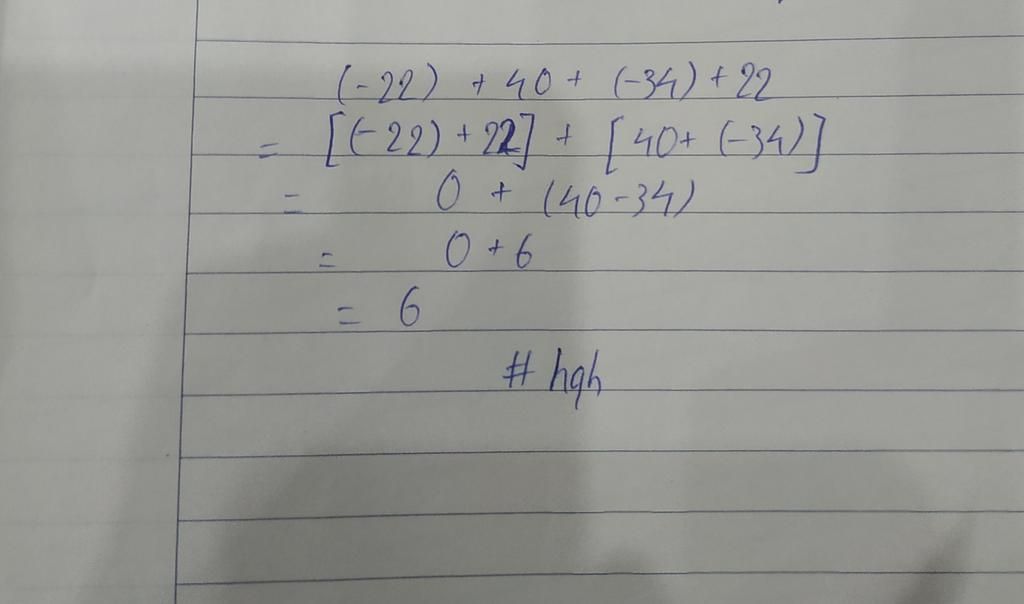 (-22) + 40 + (-34) + 22
= [(-22) + 22] + [40 + (-34)]
= 0 + (40 - 34)
= 0 + 6
= 6
# hgh